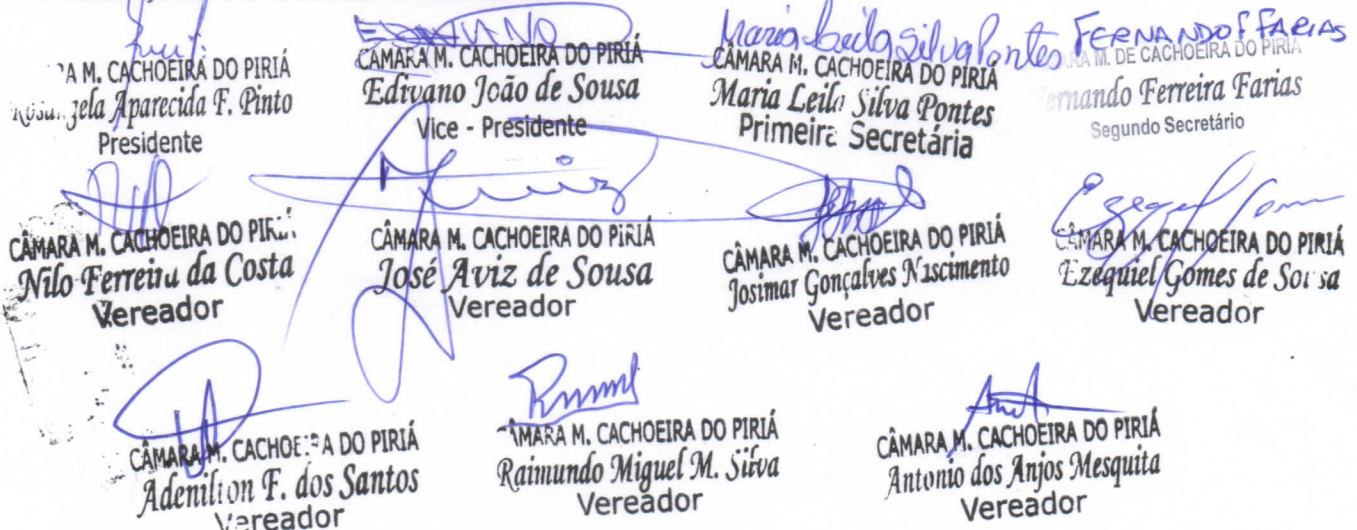 EDIVANO
Maria Leila Silva Pontes
FERNANDO F FARIAS
A M. CACHOEIRA DO PIRIÁ
Rosangela Aparecida F. Pinto
Presidente
CÂMARA M. CACHOEIRA DO PIRIÁ
Edivano João de Sousa
Vice - Presidente
CÂMARA M. CACHOEIRA DO PIRIÁ
Maria Leila Silva Pontes
Primeira Secretária
M. DE CACHOEIRA DO PIRIÁ
ernando Ferreira Farias
Segundo Secretário
CÂMARA M. CACHOEIRA DO PIRIÁ
Nilo Ferreira da Costa
Vereador
Luiz
CÂMARA M. CACHOEIRA DO PIRIÁ
José Aviz de Sousa
Vereador
CÂMARA M. CACHOEIRA DO PIRIÁ
Josimar Gonçalves Nascimento
Vereador
Ezequiel Gomes
CÂMARA M. CACHOEIRA DO PIRIÁ
Ezequiel Gomes de Sousa
Vereador
CÂMARA M. CACHOEIRA DO PIRIÁ
Adenilton F. dos Santos
Vereador
ÂMARA M. CACHOEIRA DO PIRIÁ
Raimundo Miguel M. Silva
Vereador
CÂMARA M. CACHOEIRA DO PIRIÁ
Antonio dos Anjos Mesquita
Vereador